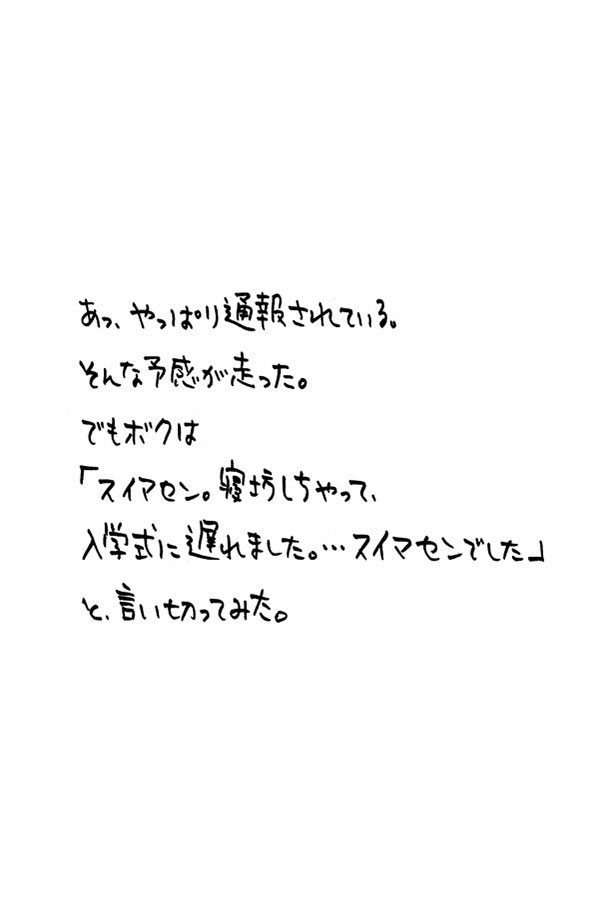 あっ、やっぱり通報されている。
そんな予感が走った。
でもボクは
「スイマセン。寝坊しちゃって、
入学式に遅れました。…スイマセンでした」
と、言い切ってみた。